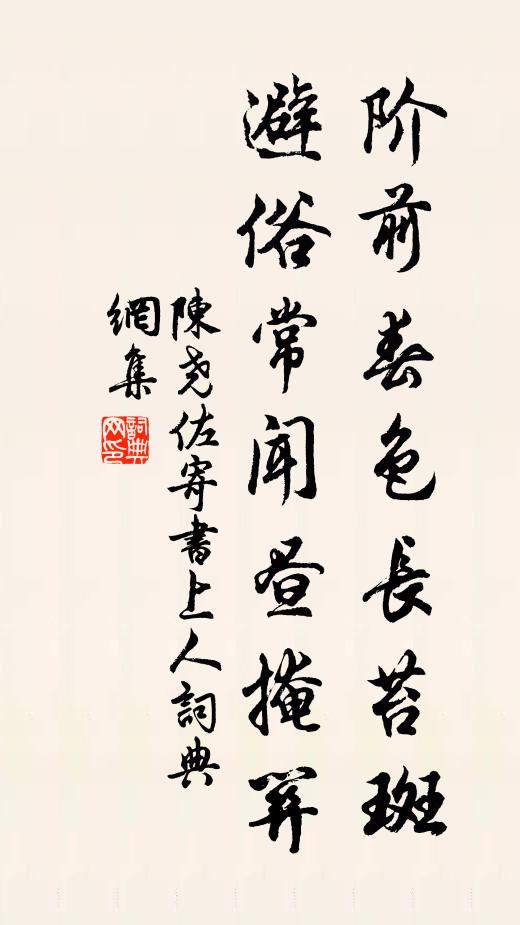 阶前春色長苔斑
避俗常闻昼掩關
陳尧佐寄書上人詞典
網集
詞典
网印